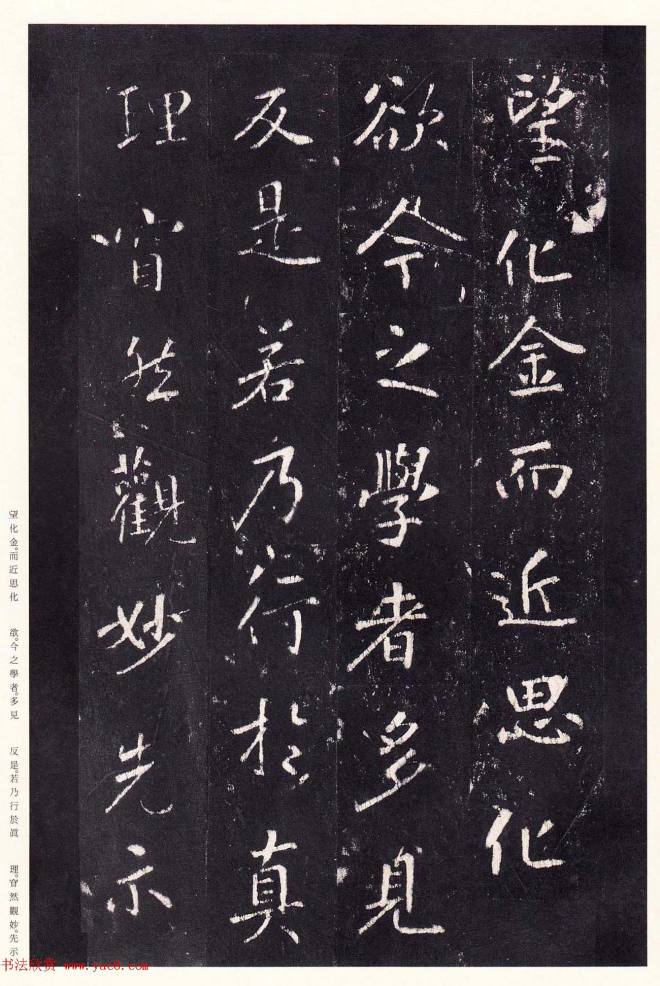 望化金而近思化
欲今之學者多見
反是若乃行於真
理窅然觀妙先示
望化金。而近思化　欲。今之學者。多見　反是。若乃行於眞　理。窅然觀妙。先示
书法欣赏 www.yac8.com